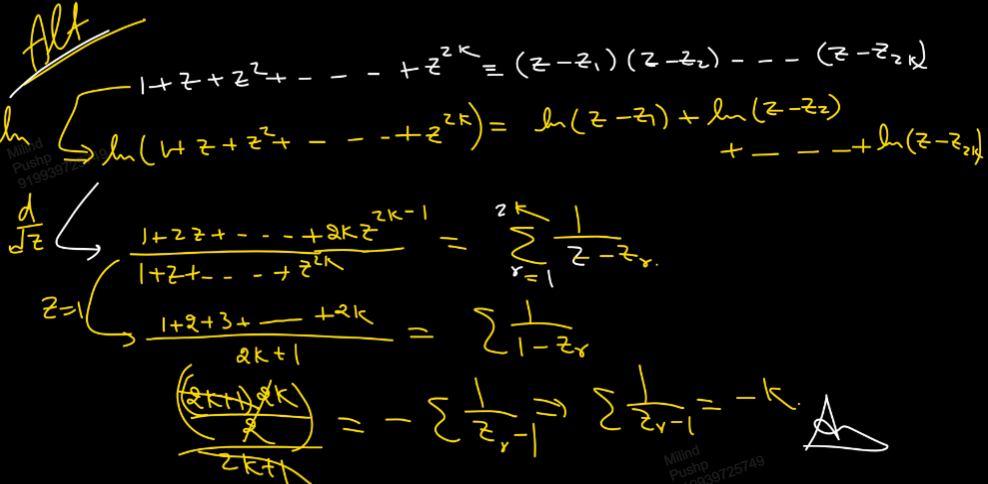 Alt
1+z+z²+ - - - - +z^{2k} ≡ (z-z₁)(z-z₂) - - - - (z-z_{2k})
ln
ln(1+z+z²+ - - - - +z^{2k}) = ln(z-z₁) + ln(z-z₂)
+ - - - + ln(z-z_{2k})
Milind
Pushp
d/dz
(1+2z+ - - - - +2kz^{2k-1})/(1+z+ - - - - +z^{2k}) = Σ_{r=1}^{2k} 1/(z-z_r).
z=1
(1+2+3+ — +2k)/(2k+1) = Σ 1/(1-z_r)
((2k+1)2k/2)/(2k+1) = -Σ 1/(z_r-1) ⇒ Σ 1/(z_r-1) = -k.
A
Milind
Pushp
919939725749